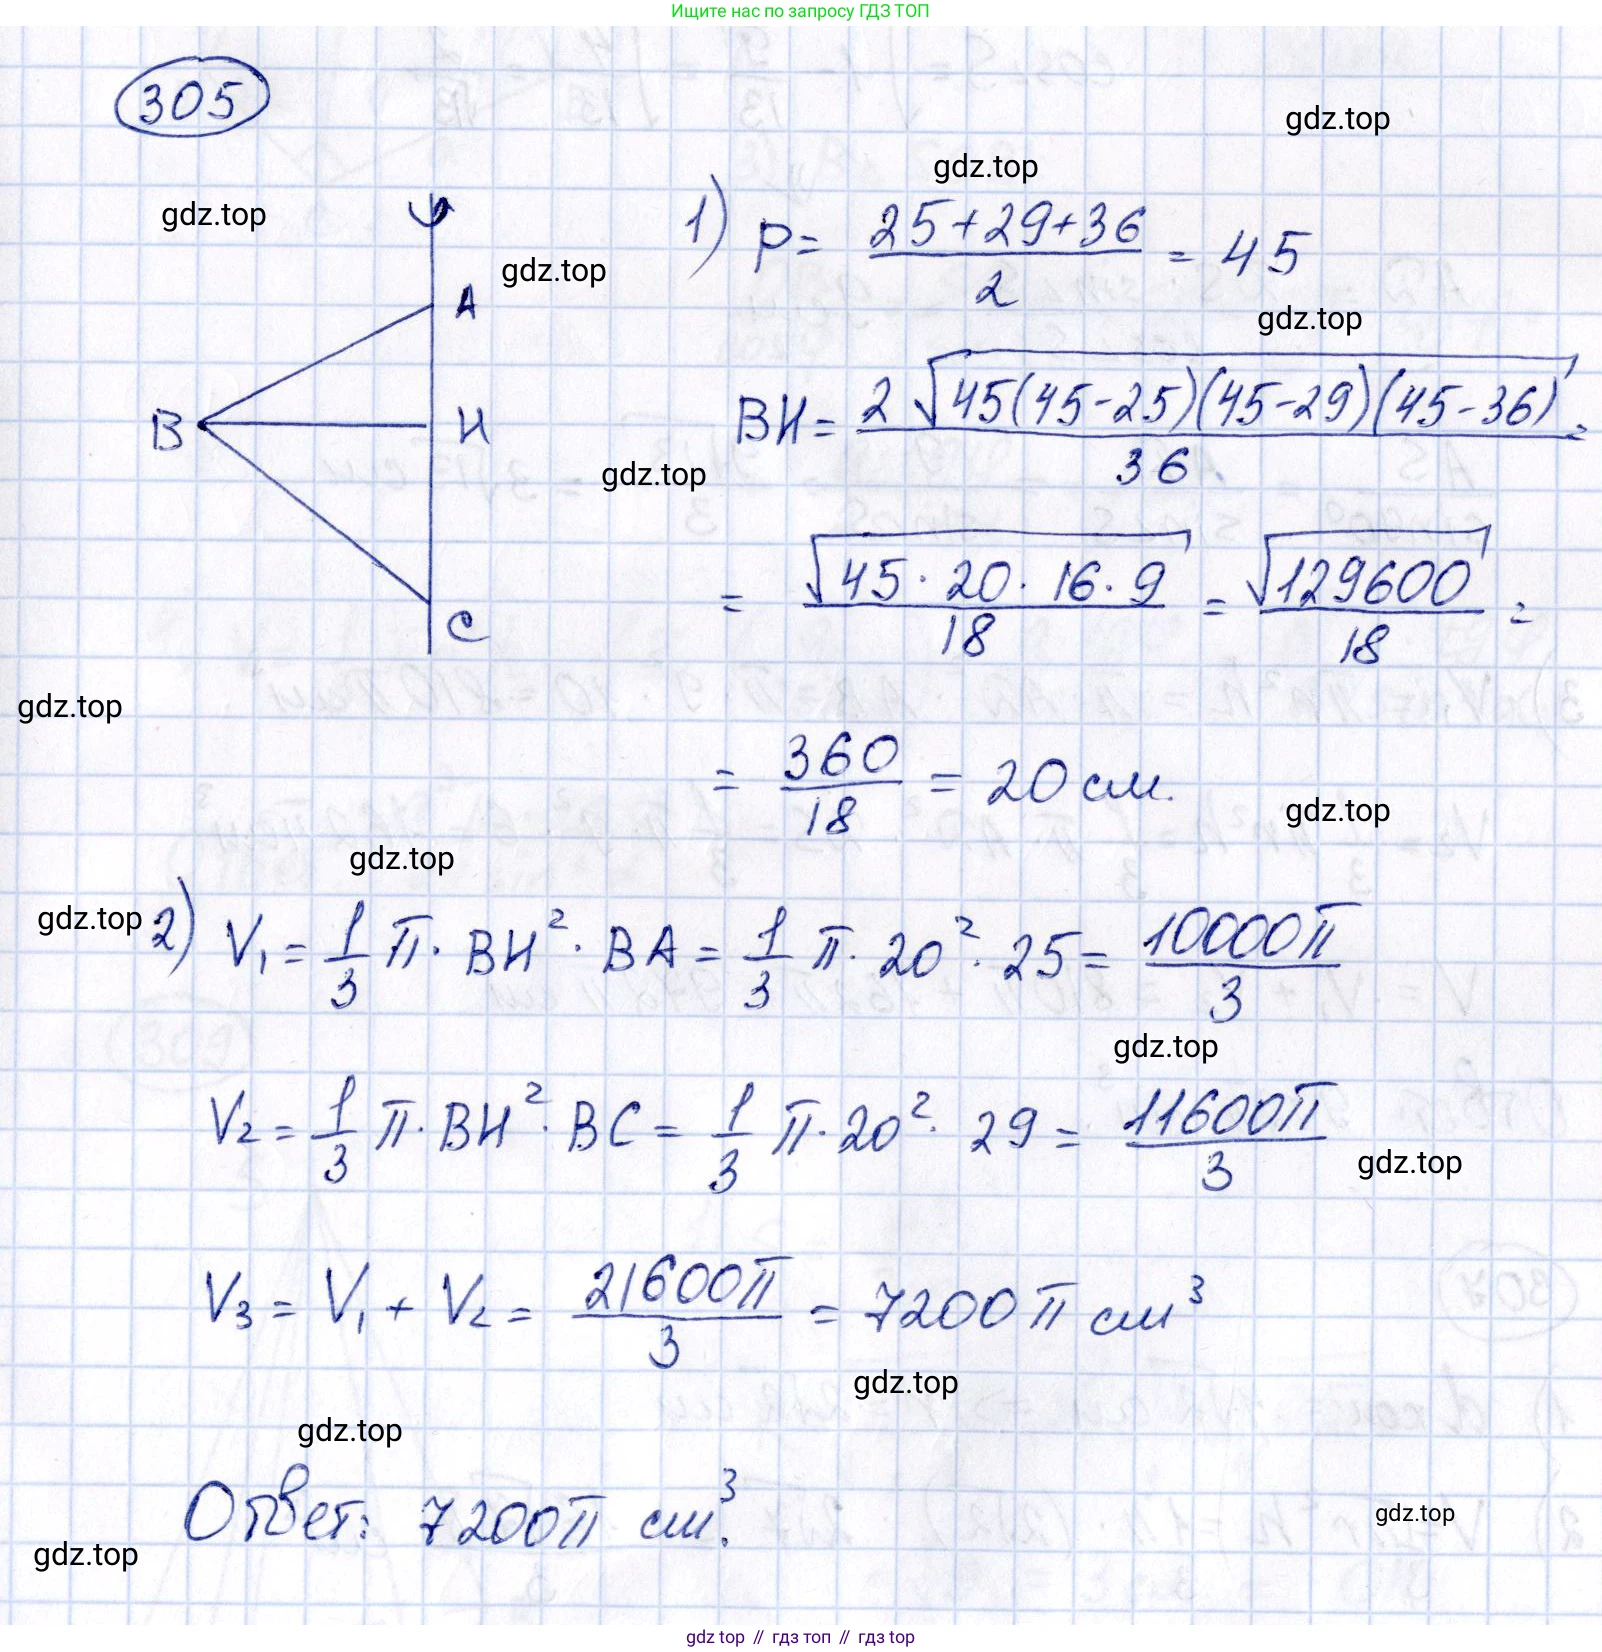 Ищите нас по запросу ГДЗ ТОП
305
gdz.top
gdz.top
gdz.top
1) p = (25+29+36)/2 = 45
gdz.top
A
gdz.top
BH = 2√(45(45-25)(45-29)(45-36))/36 =
B H
gdz.top
= √(45·20·16·9)/18 = √129600/18 =
C
gdz.top
= 360/18 = 20 см.
gdz.top
gdz.top
gdz.top
2) V₁ = 1/3 π · BH² · BA = 1/3 π · 20² · 25 = 10000π/3
gdz.top
V₂ = 1/3 π · BH² · BC = 1/3 π · 20² · 29 = 11600π/3
gdz.top
V₃ = V₁ + V₂ = 21600π/3 = 7200π см³
gdz.top
gdz.top
Ответ: 7200π см³.
gdz.top
gdz.top
gdz.top // гдз топ // gdz top